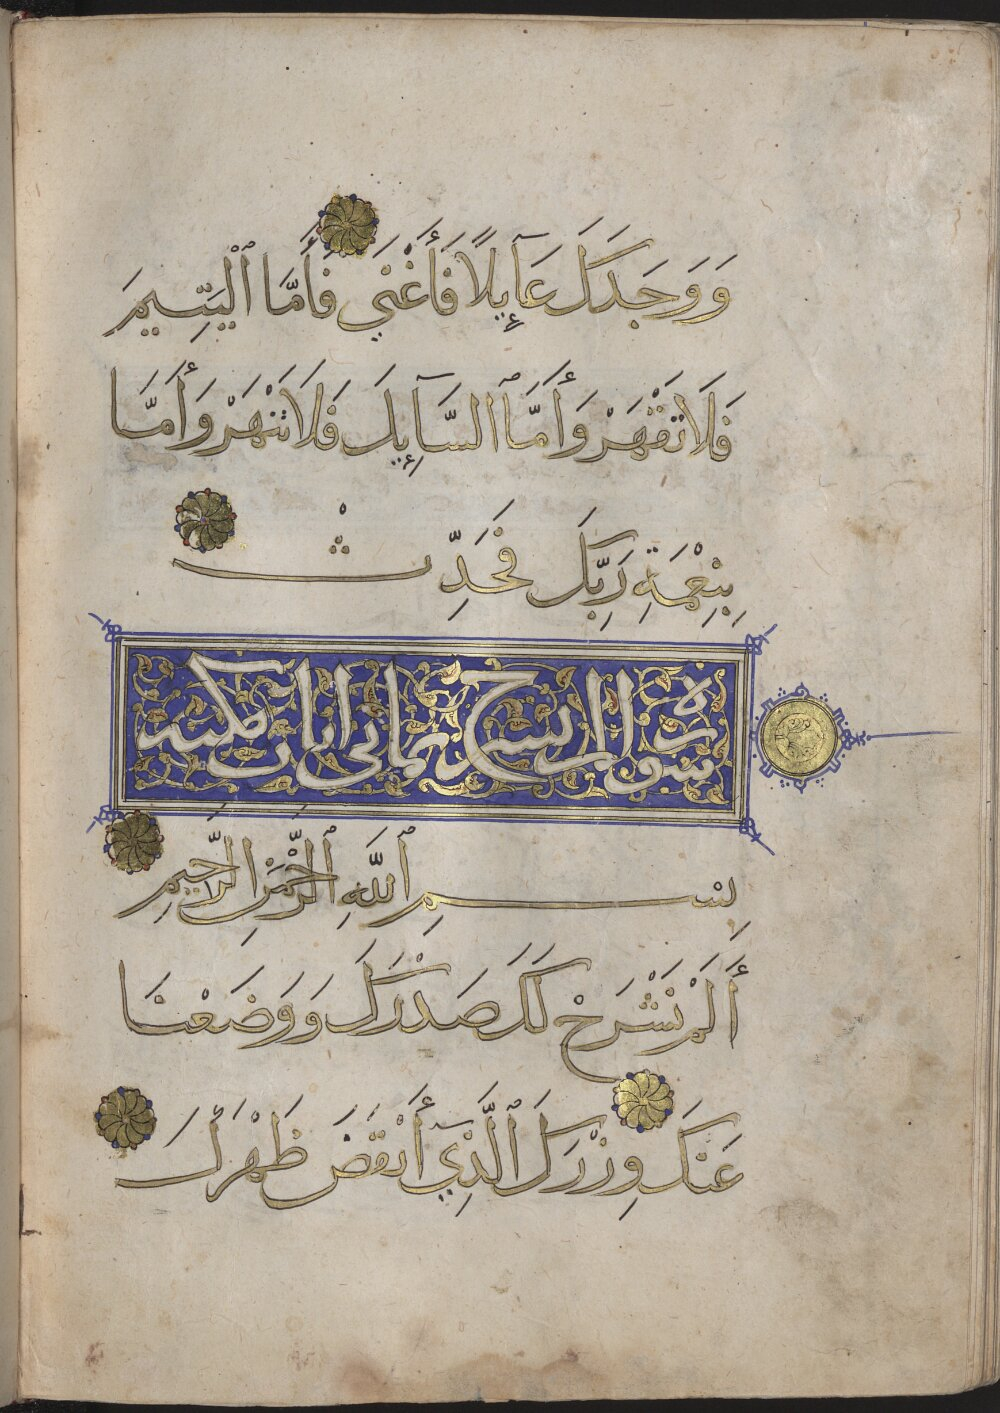 وَوَجَدَكَ عَآئِلًا فَأَغْنَى فَأَمَّا ٱلْيَتِيمَ
فَلَا تَقْهَرْ وَأَمَّا ٱلسَّآئِلَ فَلَا تَنْهَرْ وَأَمَّا
بِنِعْمَةِ رَبِّكَ فَحَدِّثْ
سورة الم نشرح ثماني ايات مكية
بِسْمِ ٱللَّهِ ٱلرَّحْمَنِ ٱلرَّحِيمِ
أَلَمْ نَشْرَحْ لَكَ صَدْرَكَ وَوَضَعْنَا
عَنكَ وِزْرَكَ ٱلَّذِي أَنْقَضَ ظَهْرَكَ